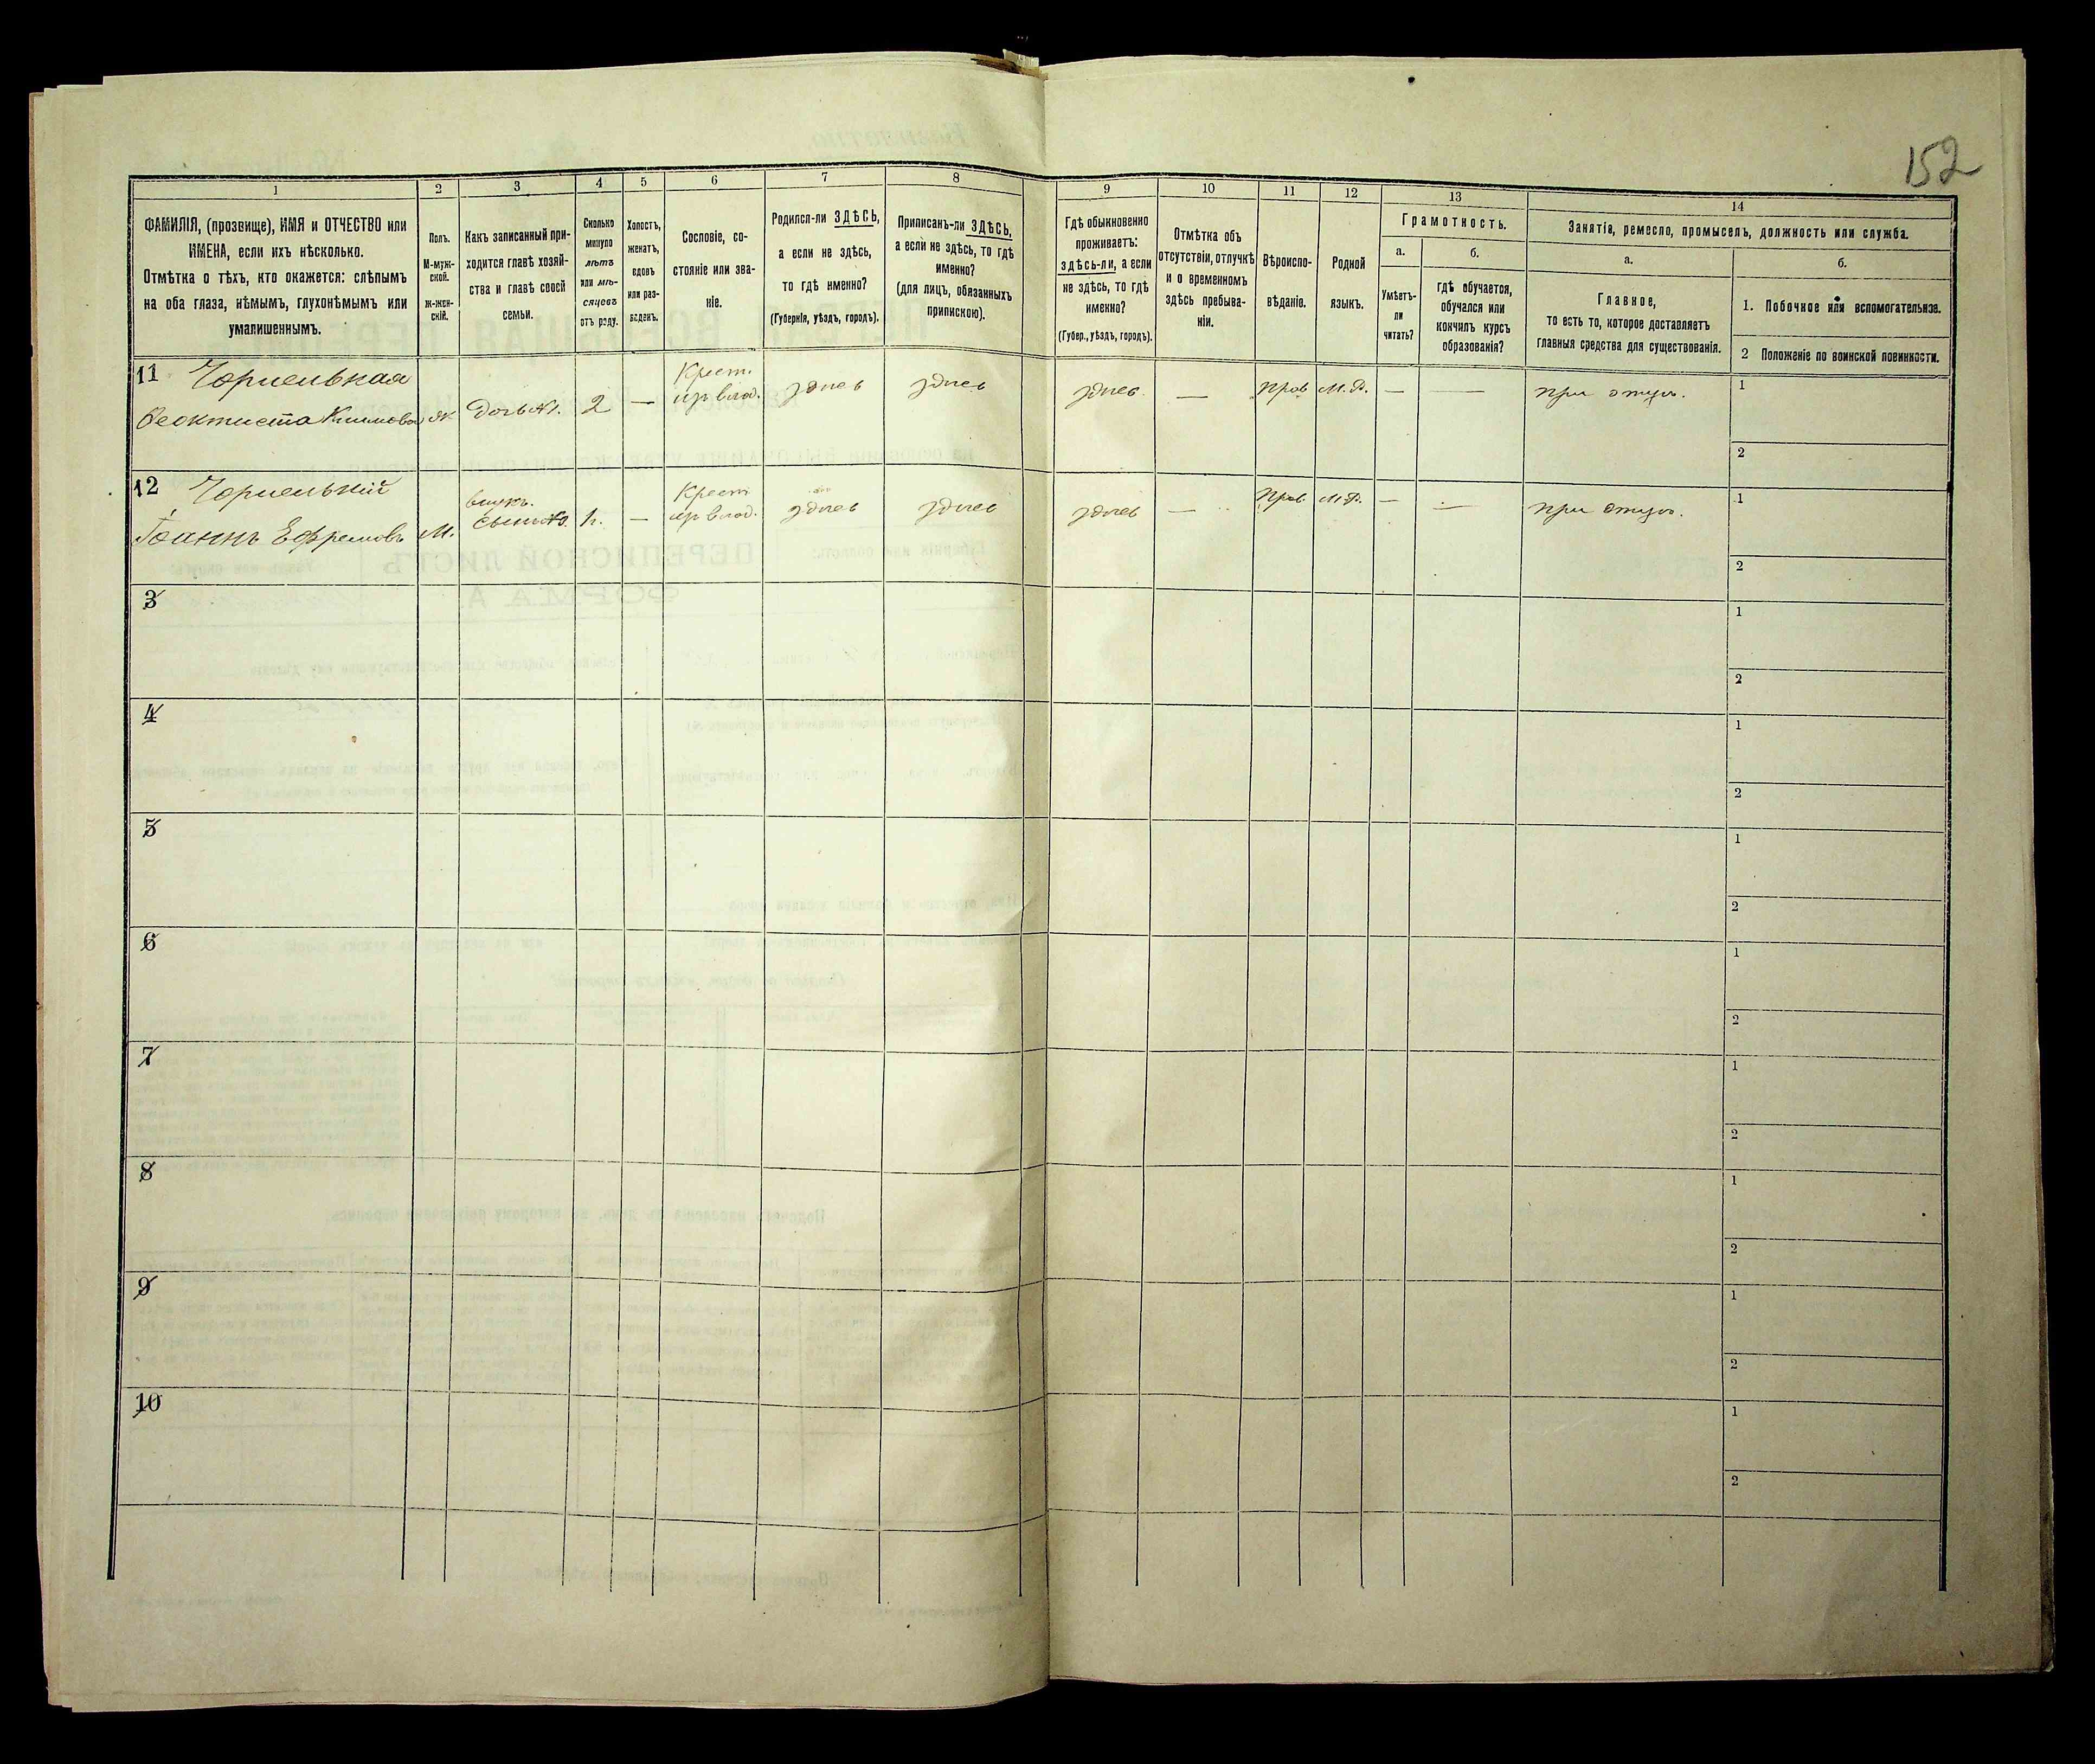 152
1 2 3 4 5 6 7 8 9 10 11 12 13 14
ФАМИЛІЯ, (прозвище), ИМЯ и ОТЧЕСТВО или
ИМЕНА, если ихъ нѣсколько.
Отмѣтка о тѣхъ, кто окажется: слѣпымъ
на оба глаза, нѣмымъ, глухонѣмымъ или
умалишеннымъ.
Полъ.
М-муж-
ской.
Ж-жен-
скій.
Какъ записанный при-
ходится главѣ хозяй-
ства и главѣ своей
семьи.
Сколько
минуло
лѣтъ
или мѣ-
сяцевъ
отъ роду.
Холостъ,
женатъ,
вдовъ
или раз-
веденъ.
Сословіе, со-
стояніе или зва-
ніе.
Родился-ли ЗДѢСЬ,
а если не здѣсь,
то гдѣ именно?
(Губернія, уѣздъ, городъ).
Приписанъ-ли ЗДѢСЬ,
а если не здѣсь, то гдѣ
именно?
(для лицъ, обязанныхъ
припискою).
Гдѣ обыкновенно
проживаетъ:
здѣсь-ли, а если
не здѣсь, то гдѣ
именно?
(Губер., уѣздъ, городъ).
Отмѣтка объ
отсутствіи, отлучкѣ
и о временномъ
здѣсь пребыва-
ніи.
Вѣроиспо-
вѣданіе.
Родной
языкъ.
Грамотность.
а.
Умѣетъ-
ли
читать?
б.
гдѣ обучается,
обучался или
кончилъ курсъ
образованія?
Занятіе, ремесло, промыселъ, должность или служба.
а.
Главное,
то есть то, которое доставляетъ
главныя средства для существованія.
б.
1. Побочное или вспомогательное.
2 Положеніе по воинской повинности.
11
Феоктиста
Ж
2
—
Крест.
здѣсь здѣсь здѣсь — Прав М.Р. — — при отцѣ. 1
2
12
Іоаннъ Ефремовъ М.
внукъ.
—
Крест
здѣсь здѣсь здѣсь — Прав М.Р. — — при отцѣ. 1
2
3 1
2
4 1
2
5 1
2
6 1
2
7 1
2
8 1
2
9 1
2
10 1
2